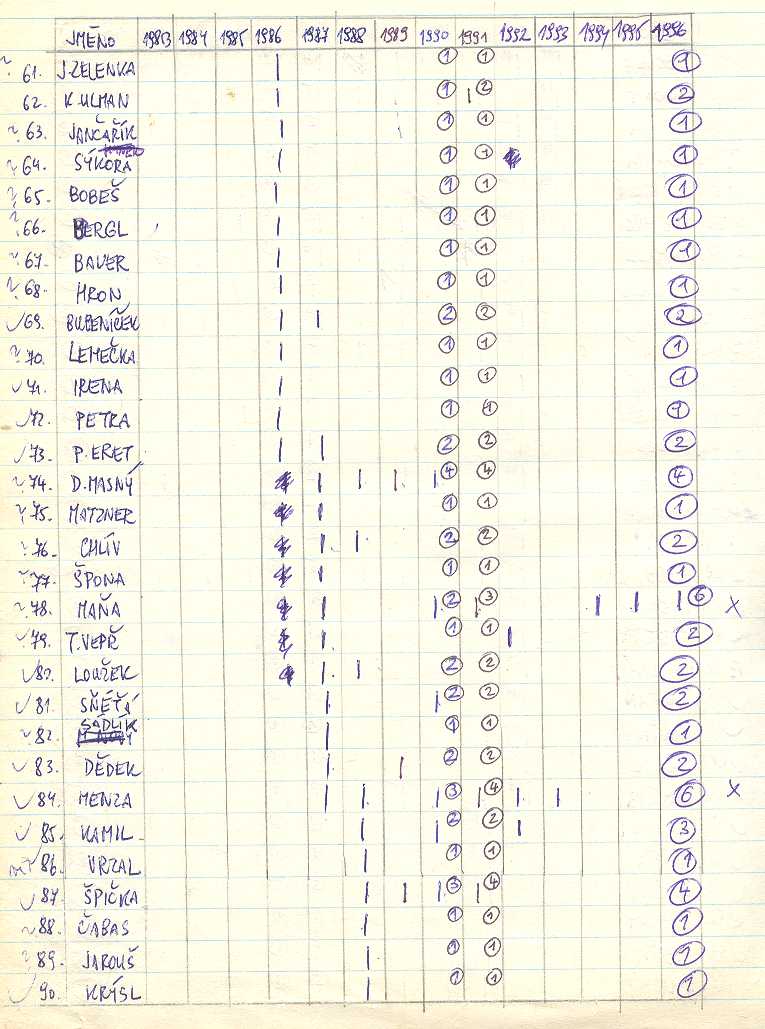 JMÉNO 1983 1984 1985 1986 1987 1988 1989 1990 1991 1992 1993 1994 1995 1996
? 61. J. ZELENKA | 1 1 1
62. K. ULMAN | 1 | 2 2
? 63. JANČAŘÍK | 1 1 1
? 64. SÝKORA | 1 1 1
? 65. BOBEŠ | 1 1 1
? 66. BERGL | 1 1 1
? 67. BAUER | 1 1 1
? 68. HRON | 1 1 1
✓ 69. BUBENÍČEK | | 2 2 2
? 70. LEMEČKA | 1 1 1
✓ 71. IRENA | 1 1 1
✓ 72. PETRA | 1 1 1
✓ 73. P. ERET | | 2 2 2
? 74. D. MASNÝ | | | | 4 4 4
? 75. MATZNER | 1 1 1
? 76. CHLÍV | | 2 2 2
? 77. ŠPONA | 1 1 1
? 78. MAŇA | | 2 | 3 | | | 6 X
79. T. VEPŘ | 1 1 | 2
✓ 80. LOUŽEK | | 2 2 2
✓ 81. SŇÉŤA | | 2 2 2
? 82. SÁDLÍK | 1 1 1
✓ 83. DĚDEK | | 2 2 2
✓ 84. MENZA | | | 3 | 4 | | 6 X
✓ 85. KAMIL | | 2 2 | 3
86. VRZAL | 1 1 1
✓ 87. ŠPIČKA | | | 3 | 4 4
88. ČABAS | 1 1 1
? 89. JAROUŠ | 1 1 1
✓ 90. KRÝSL | 1 1 1